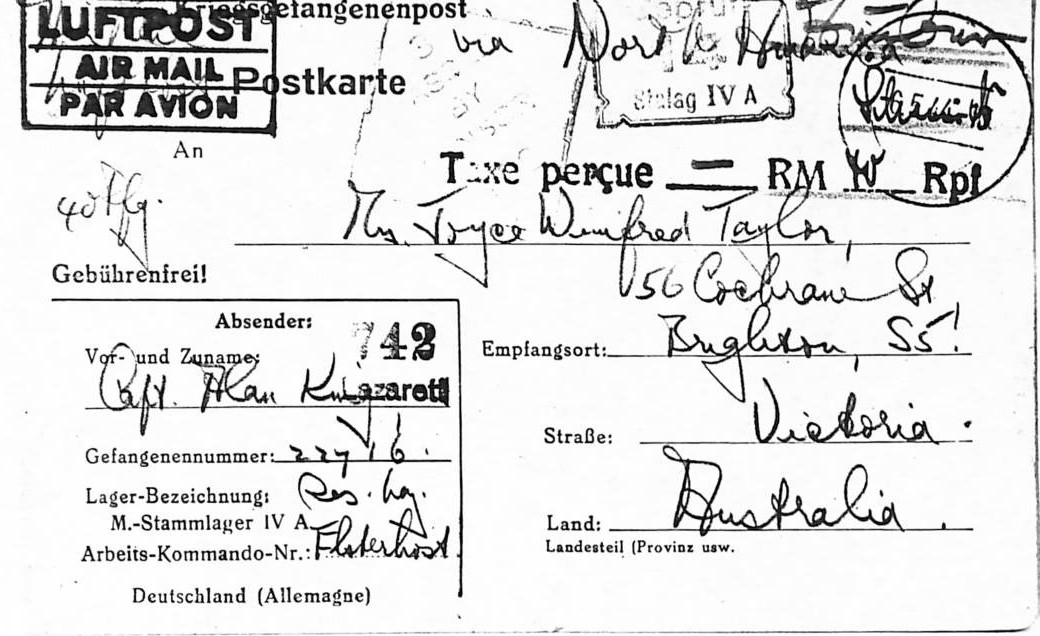 Kriegsgefangenenpost
LUFTPOST
AIR MAIL
PAR AVION
via North America
Postkarte
Stalag IV A
An
Taxe perçue = RM 40 Rpf
40 Pfg.
Mrs. Joyce Winifred Taylor,
Gebührenfrei!
56 Cochrane St
Absender:
742
Vor- und Zuname:
Empfangsort: Brighton, S5!
Capt. Alan King
Lazarett
Victoria.
Straße:
Gefangenennummer: 22716.
Lager-Bezeichnung: Res. Laz.
M.-Stammlager IV A
Land: Australia.
Arbeits-Kommando-Nr.: Elsterhorst
Landesteil (Provinz usw.
Deutschland (Allemagne)